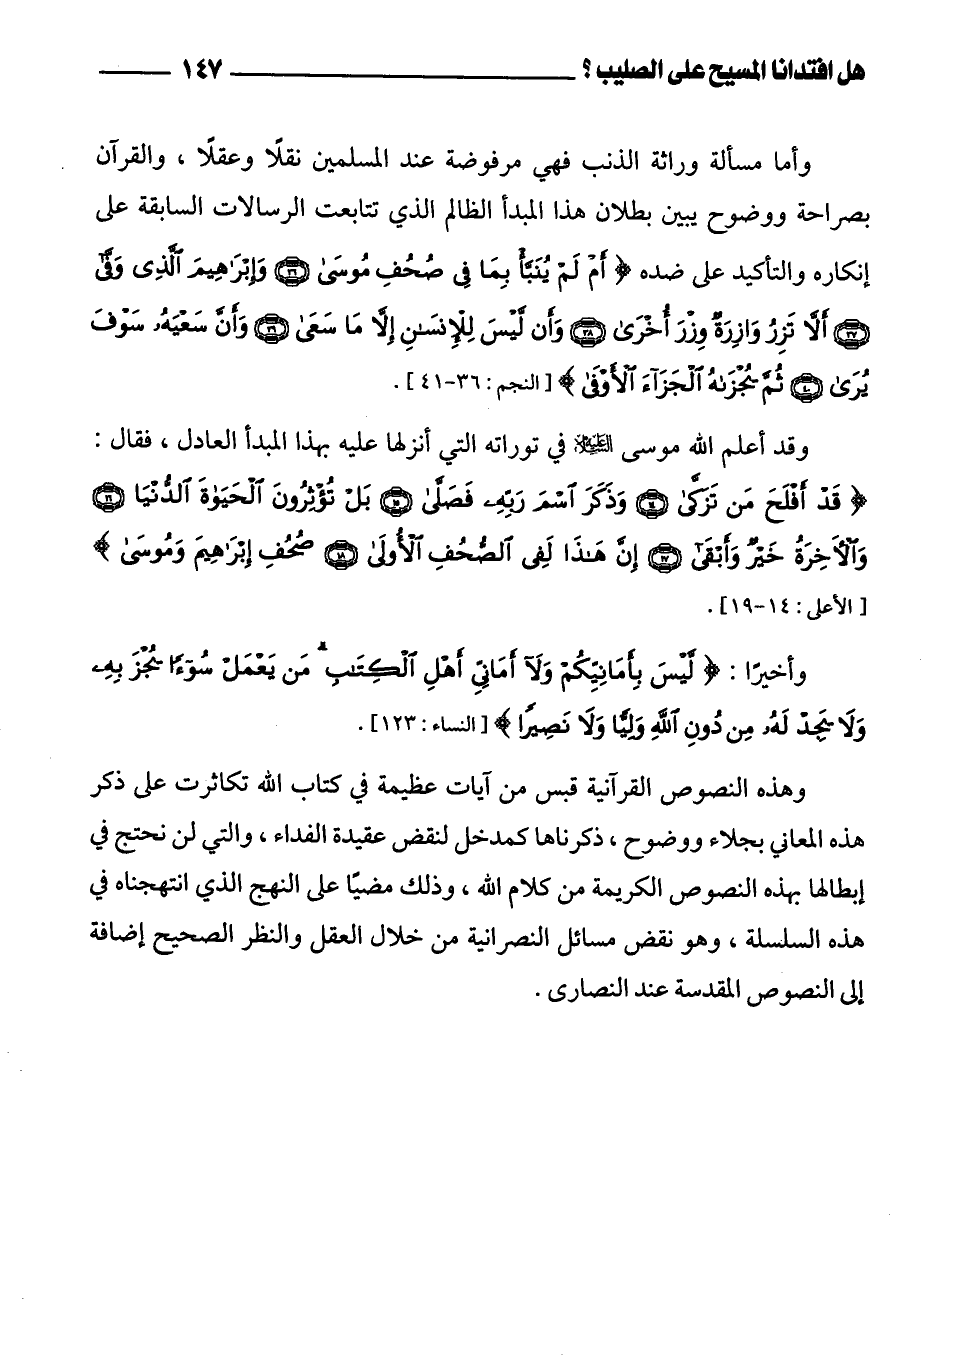 هل افتدانا المسيح على الصليب ؟ ١٤٧
وأما مسألة وراثة الذنب فهي مرفوضة عند المسلمين نقلًا وعقلًا ، والقرآن
بصراحة ووضوح يبين بطلان هذا المبدأ الظالم الذي تتابعت الرسالات السابقة على
إنكاره والتأكيد على ضده ﴿ أَمْ لَمْ يُنَبَّأْ بِمَا فِى صُحُفِ مُوسَىٰ ۝٣٦ وَإِبْرَٰهِيمَ ٱلَّذِى وَفَّىٰٓ
۝٣٧ أَلَّا تَزِرُ وَازِرَةٌ وِزْرَ أُخْرَىٰ ۝٣٨ وَأَن لَّيْسَ لِلْإِنسَـٰنِ إِلَّا مَا سَعَىٰ ۝٣٩ وَأَنَّ سَعْيَهُۥ سَوْفَ
يُرَىٰ ۝٤٠ ثُمَّ يُجْزَىٰهُ ٱلْجَزَآءَ ٱلْأَوْفَىٰ ﴾ [ النجم : ٣٦-٤١ ] .
وقد أعلم الله موسى العليه السلام في توراته التي أنزلها عليه بهذا المبدأ العادل ، فقال :
﴿ قَدْ أَفْلَحَ مَن تَزَكَّىٰ ۝١٤ وَذَكَرَ ٱسْمَ رَبِّهِۦ فَصَلَّىٰ ۝١٥ بَلْ تُؤْثِرُونَ ٱلْحَيَوٰةَ ٱلدُّنْيَا ۝١٦
وَٱلْـَٔاخِرَةُ خَيْرٌ وَأَبْقَىٰٓ ۝١٧ إِنَّ هَـٰذَا لَفِى ٱلصُّحُفِ ٱلْأُولَىٰ ۝١٨ صُحُفِ إِبْرَٰهِيمَ وَمُوسَىٰ ﴾
[ الأعلى : ١٤-١٩] .
وأخيرًا : ﴿ لَّيْسَ بِأَمَانِيِّكُمْ وَلَآ أَمَانِىِّ أَهْلِ ٱلْكِتَـٰبِ ۗ مَن يَعْمَلْ سُوٓءًا يُجْزَ بِهِۦ
وَلَا يَجِدْ لَهُۥ مِن دُونِ ٱللَّهِ وَلِيًّا وَلَا نَصِيرًا ﴾ [ النساء : ١٢٣] .
وهذه النصوص القرآنية قبس من آيات عظيمة في كتاب الله تكاثرت على ذكر
هذه المعاني بجلاء ووضوح ، ذكرناها كمدخل لنقض عقيدة الفداء ، والتي لن نحتج في
إبطالها بهذه النصوص الكريمة من كلام الله ، وذلك مضيًا على النهج الذي انتهجناه في
هذه السلسلة ، وهو نقض مسائل النصرانية من خلال العقل والنظر الصحيح إضافة
إلى النصوص المقدسة عند النصارى .